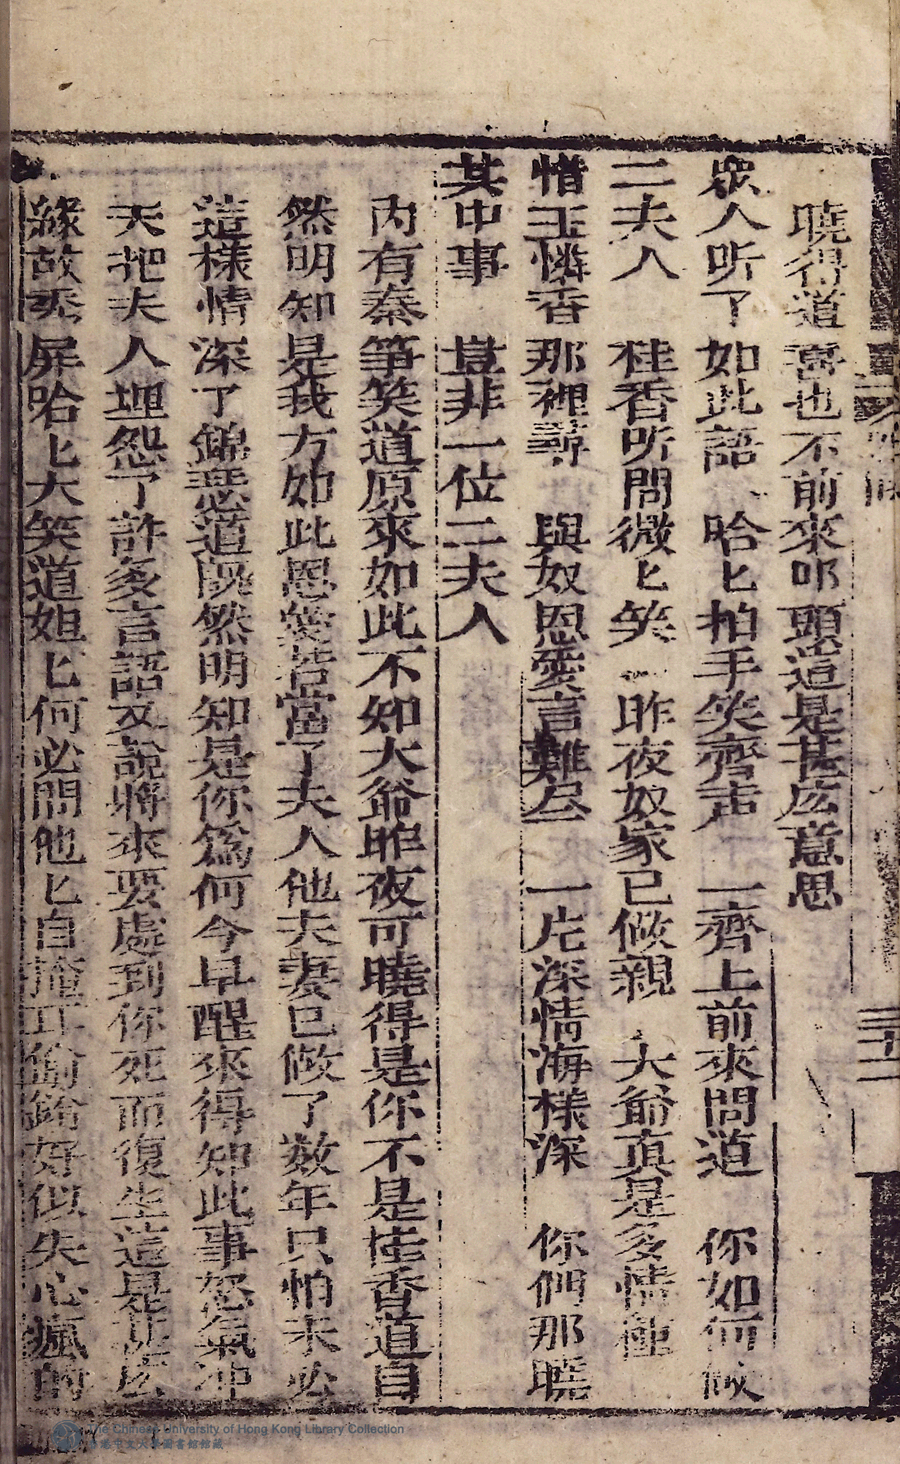 曉得道喜也不前來叩頭這是甚庅意思
眾人听了如此語 哈匕拍手笑齊声 一齊上前來問道 你如何做
二夫人 桂香听問微匕笑 昨夜奴家已做親 大爺真是多情種
惜玉憐香那裡尋 與奴恩愛言難尽 一片深情海樣深 你們那曉
其中事 豈非一位二夫人
內有秦箏笑道原來如此不知大爺昨夜可曉得是你不是桂香道自
然明知是我方如此恩愛若當了夫人他夫妻已做了数年只怕未必
這樣情深了錦瑟道既然明知是你為何今早醒來得知此事怒氣冲
天把夫人埋怨了許多言語又說將來要處到你死而復生這是甚庅
緣故秀屏哈匕大笑道姐匕何必問他匕自掩耳偷鈴好似失心瘋的
三五一
The Chinese University of Hong Kong Library Collection
香港中文大學圖書館館藏